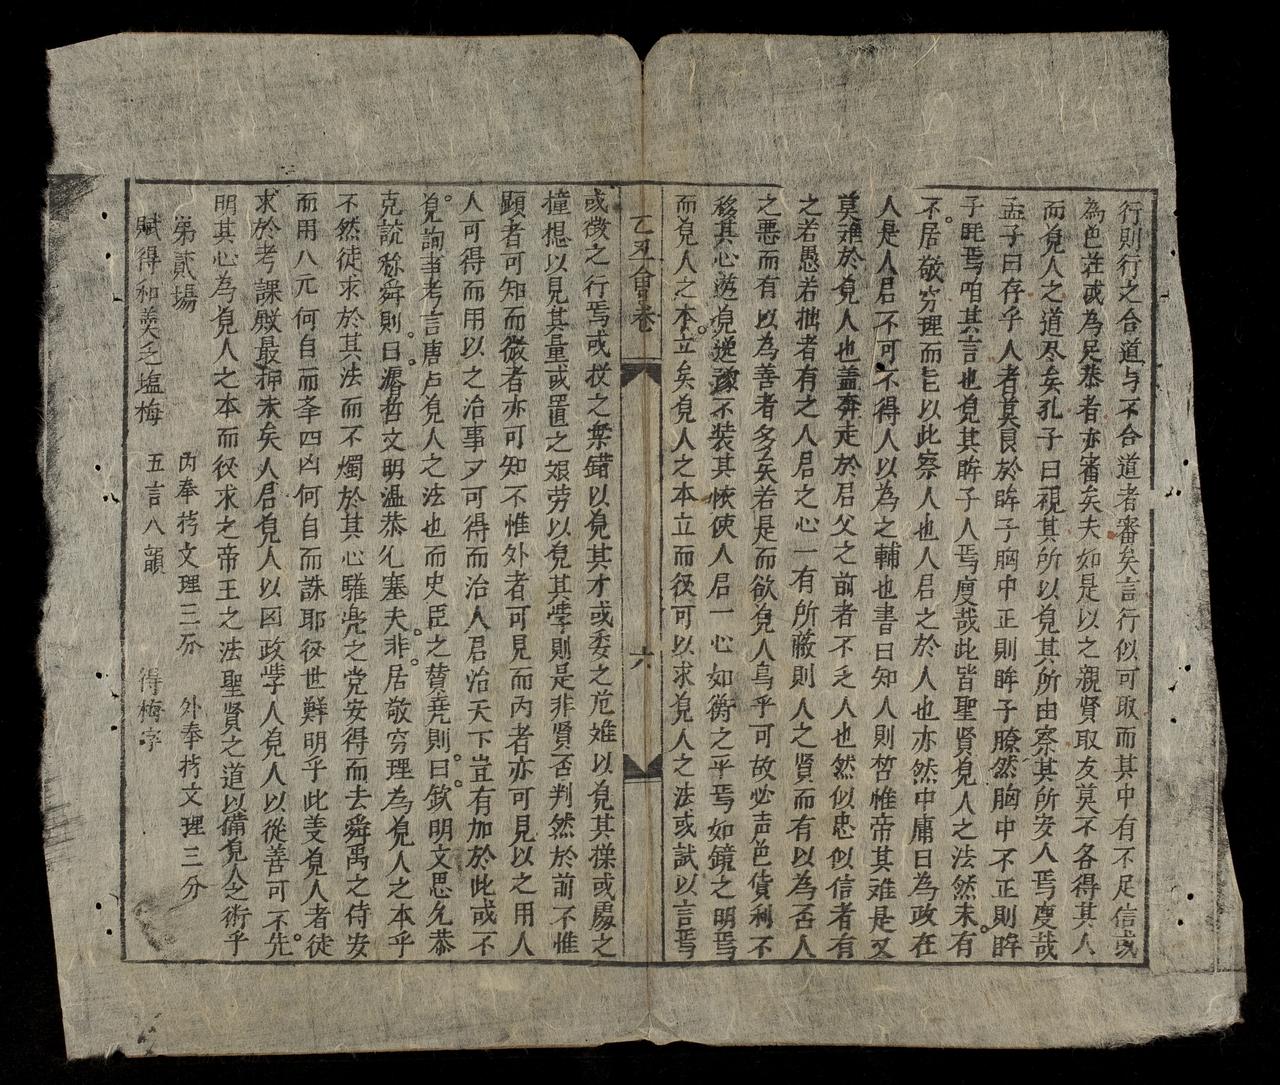 行則行之合道与不合道者審矣言行似可取而其中有不足信或
為色荘或為足恭者亦審矣夫如是以之親賢取友莫不各得其人
而覓人之道尽矣孔子曰視其所以覓其所由察其所安人焉廋哉
孟子曰存乎人者莫良於眸子胸中正則眸子瞭然胸中不正則眸
子眊焉咱其言也覓其眸子人焉廋哉此皆聖賢覓人之法然未有
不居敬穷理而㠯以此察人也人君之於人也亦然中庸曰為政在
人是人君不可不得人以為之輔也書曰知人則哲惟帝其难是又
莫难於覓人也盖奔走於君父之前者不乏人也然似忠似信者有
之若愚若拙者有之人君之心一有所蔽則人之賢而有以為否人
之悪而有以為善者多矣若是而欲覓人烏乎可故必声色貨利不
移其心遊覓逆豫不装其怀使人君一心如衡之平焉如鏡之明焉
而覓人之本立矣覓人之本立而徑可以求覓人之法或試以言焉
乙丑會卷 六
或徴之行焉或投之棼錯以覓其才或委之危难以覓其操或處之
撞搃以見其量或置之艰劳以覓其斈則是非賢否判然於前不惟
顕者可知而微者亦可知不惟外者可見而内者亦可見以之用人
人可得而用以之治事夕可得而治人君治天下豈有加於此或不
覓詢事考言唐虞覓人之法也而史臣之賛尭則曰欽明文思允恭
克説称舜則曰濬哲文明温恭允塞夫非居敬穷理為覓人之本乎
不然徒求於其法而不燭於其心驩兠之党安得而去舜禹之侍安
而用八元何自而夆四凶何自而誅耶徑世鮮明乎此妄覓人者徒
求於考課殿最抑末矣人君覓人以図政斈人覓人以從善可不先
明其心為覓人之本而徑求之帝王之法聖賢之道以備覓人之術乎
弟貳場 内奉考文理三分 外奉考文理三分
賦得和羹乏塩梅 五言八韻 得梅字